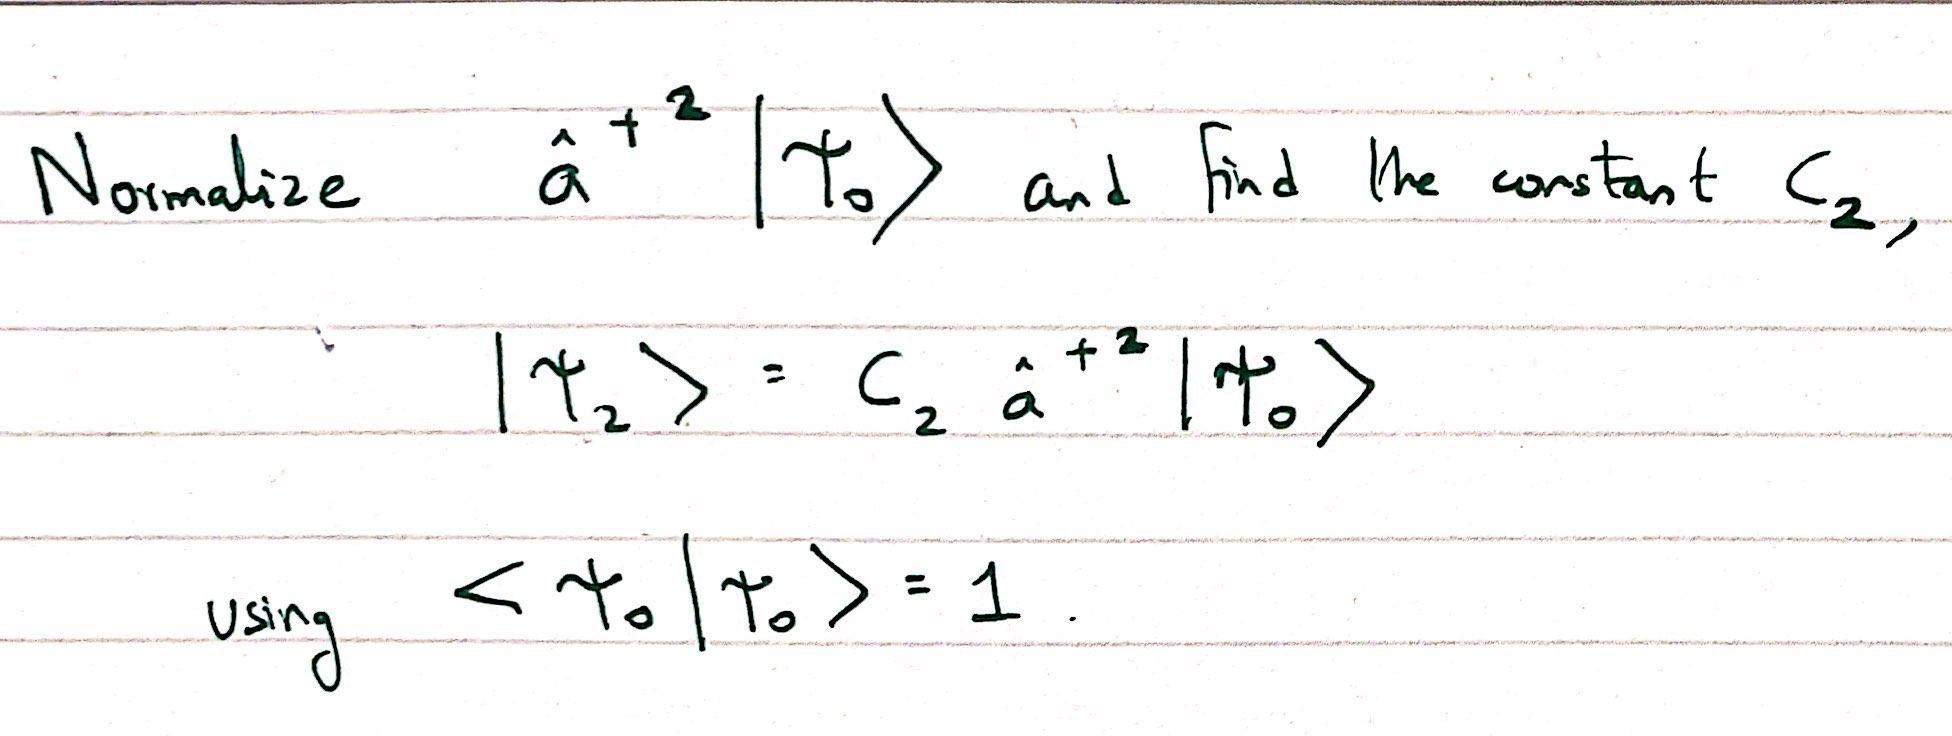 Normalize â⁺² |Ψ₀⟩ and find the constant C₂,
|Ψ₂⟩ = C₂ â⁺² |Ψ₀⟩
using <Ψ₀|Ψ₀> = 1.